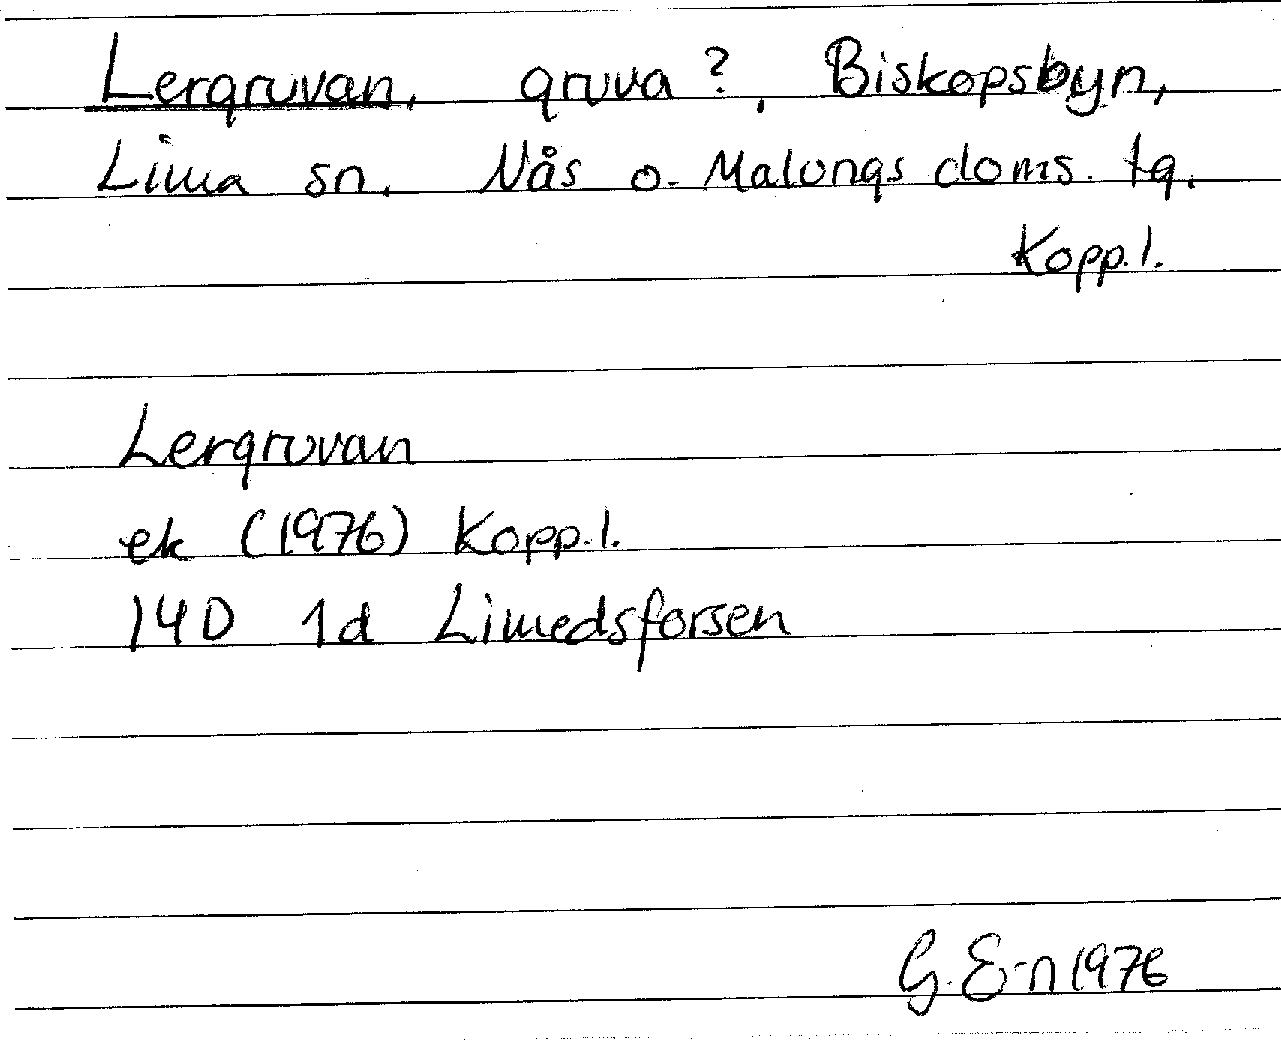 Lergruvan, gruva?, Biskopsbyn,
Lima sn. Nås o. Malungs doms. tg.
Kopp.l.
Lergruvan
ek (1976) Kopp.l.
14D 1d Limedsforsen
G. E-n 1976